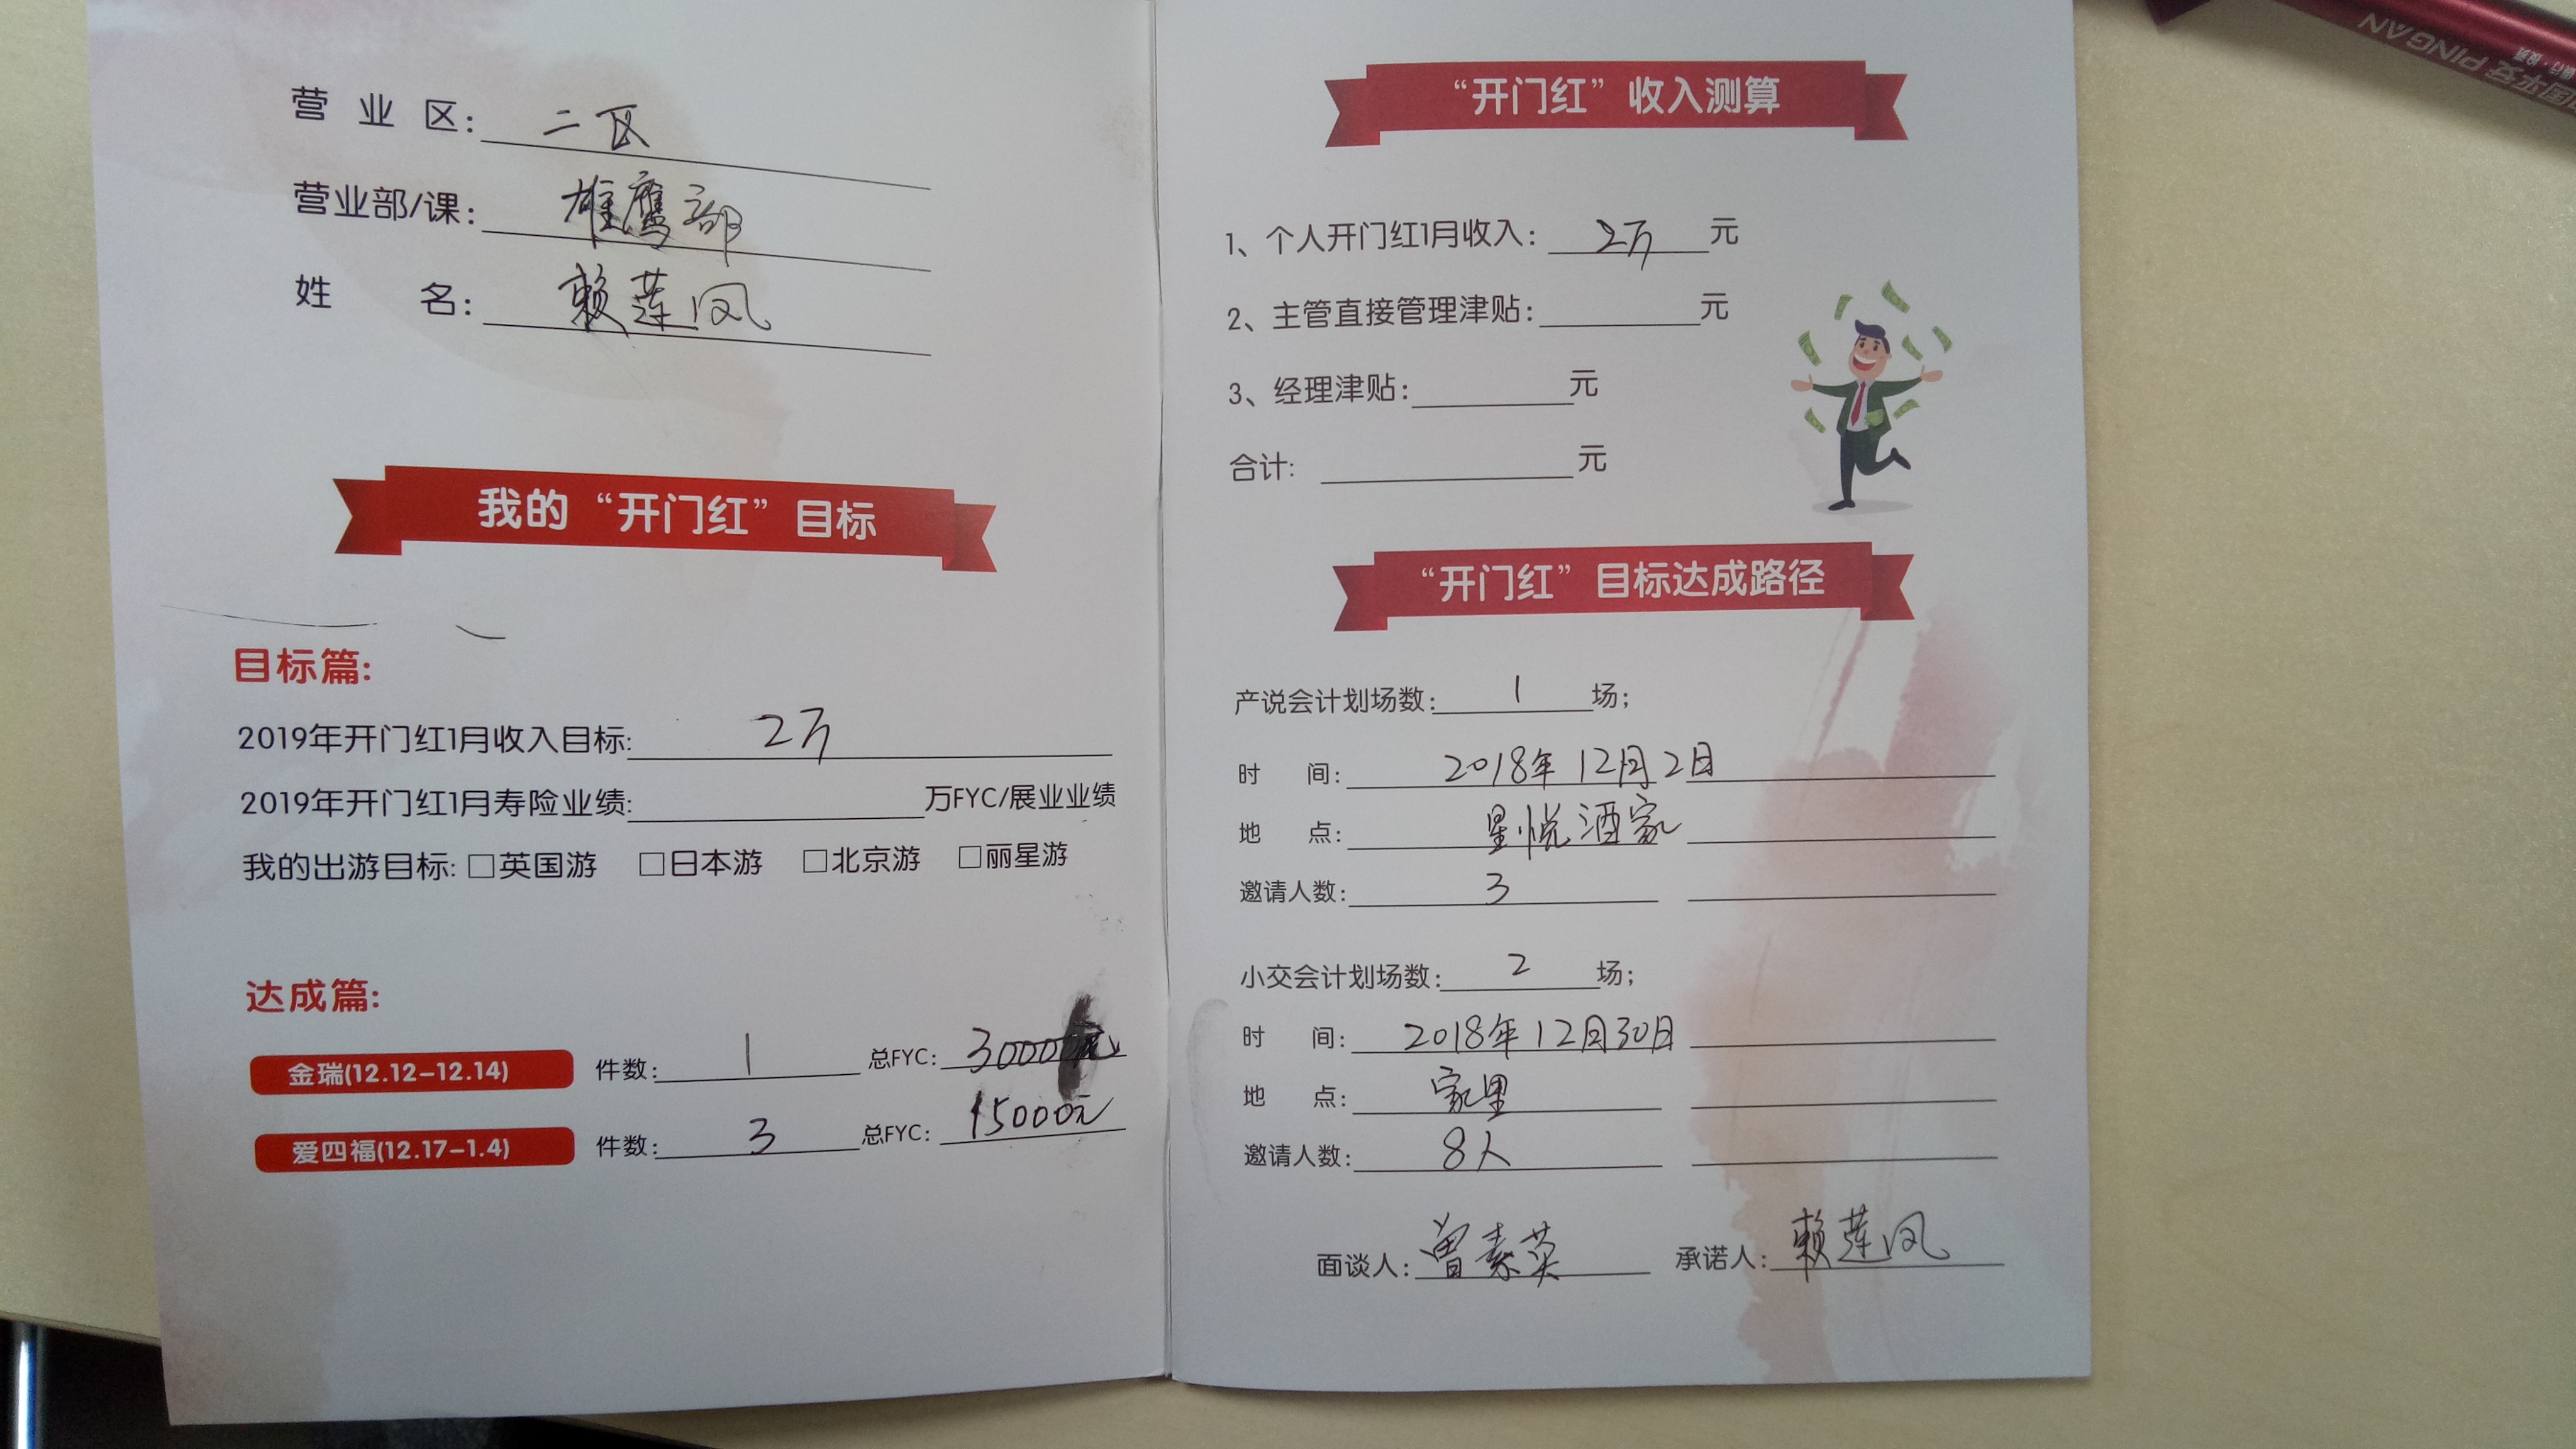 营业区: 二区
营业部/课: 雄鹰部
姓名: 赖莲凤
我的“开门红”目标
目标篇:
2019年开门红1月收入目标: 2万
2019年开门红1月寿险业绩: 万FYC/展业业绩
我的出游目标: □英国游 □日本游 □北京游 □丽星游
达成篇:
金瑞(12.12-12.14) 件数: 1 总FYC: 3000元
爱四福(12.17-1.4) 件数: 3 总FYC: 15000元
“开门红”收入测算
1、个人开门红1月收入: 2万 元
2、主管直接管理津贴: 元
3、经理津贴: 元
合计: 元
“开门红”目标达成路径
产说会计划场数: 1 场;
时间: 2018年12月2日
地点: 星悦酒家
邀请人数: 3
小交会计划场数: 2 场;
时间: 2018年12月30日
地点: 家里
邀请人数: 8人
面谈人: 曾素英 承诺人: 赖莲凤
平安 PING AN